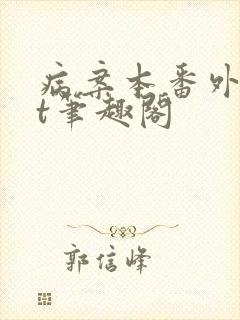 病案本番外
t笔趣阁
郭信峰